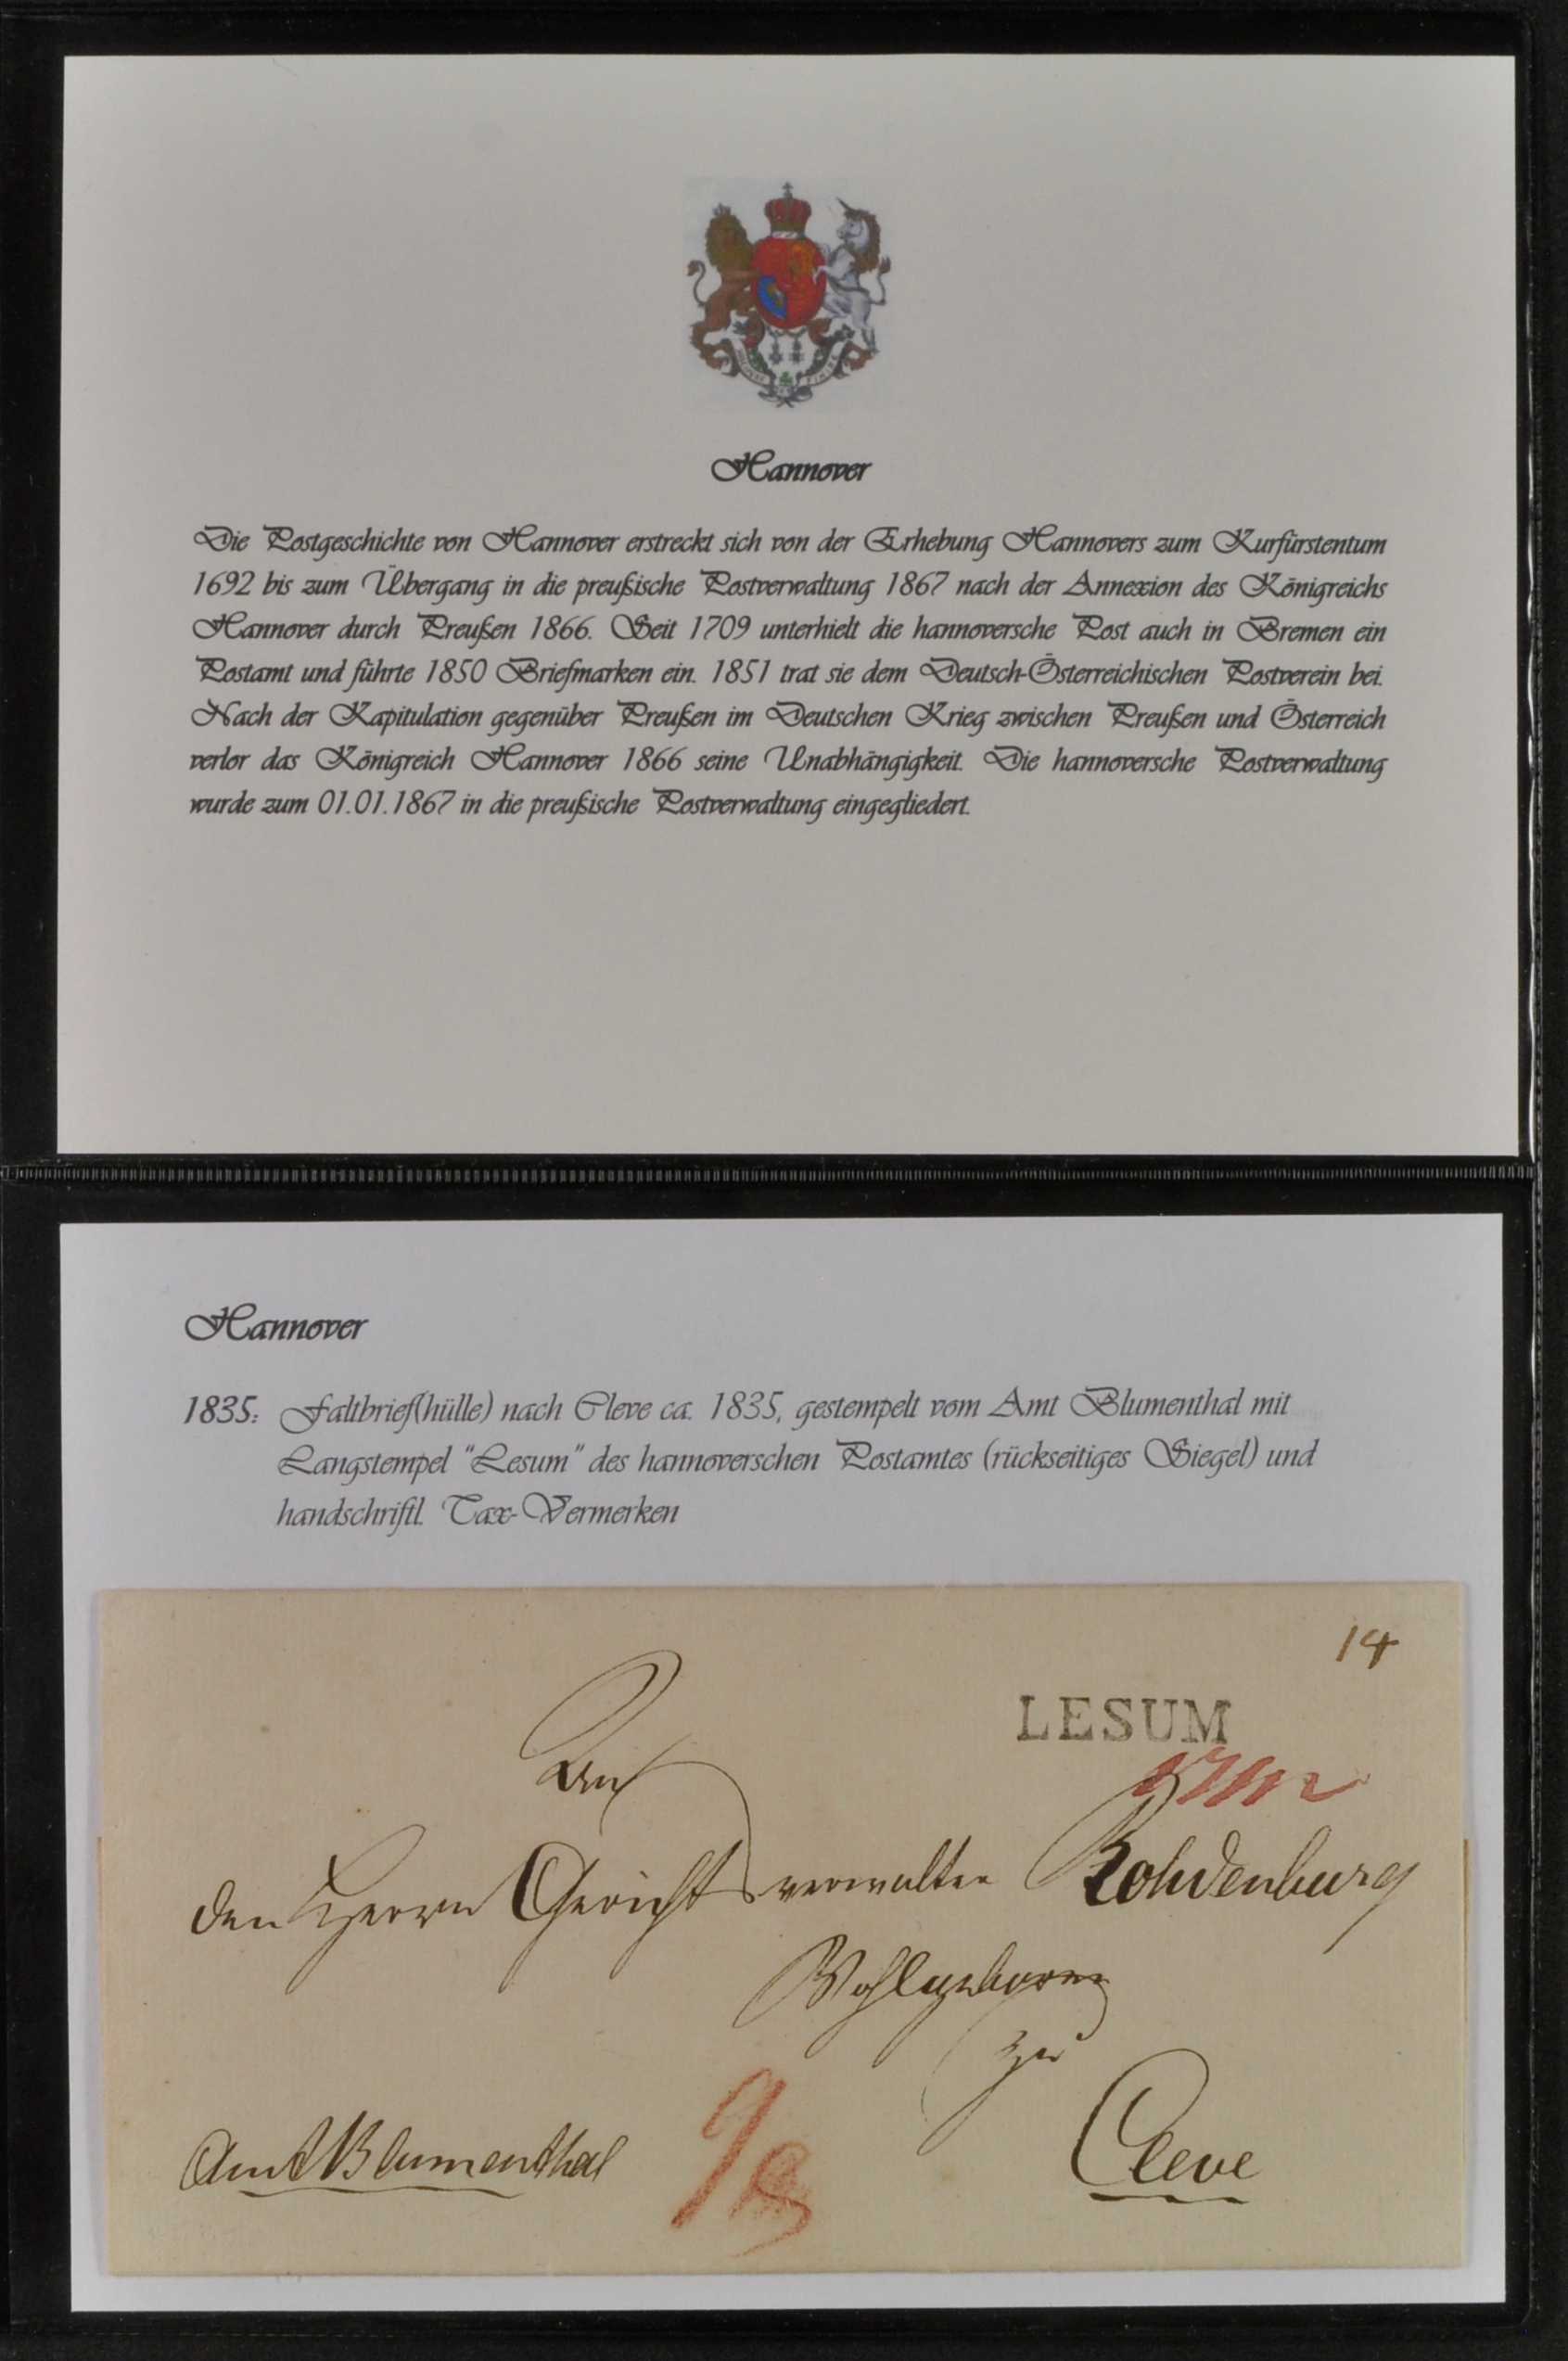 Hannover
Die Postgeschichte von Hannover erstreckt sich von der Erhebung Hannovers zum Kurfürstentum
1692 bis zum Übergang in die preußische Postverwaltung 1867 nach der Annexion des Königreichs
Hannover durch Preußen 1866. Seit 1709 unterhielt die hannoversche Post auch in Bremen ein
Postamt und führte 1850 Briefmarken ein. 1851 trat sie dem Deutsch-Österreichischen Postverein bei.
Nach der Kapitulation gegenüber Preußen im Deutschen Krieg zwischen Preußen und Österreich
verlor das Königreich Hannover 1866 seine Unabhängigkeit. Die hannoversche Postverwaltung
wurde zum 01.01.1867 in die preußische Postverwaltung eingegliedert.
Hannover
1835: Faltbrief(hülle) nach Cleve ca. 1835, gestempelt vom Amt Blumenthal mit
Langstempel "Lesum" des hannoverschen Postamtes (rückseitiges Siegel) und
handschriftl. Tax-Vermerken
14
LESUM
An
den Herrn Gerichtsverwalter Rohdenburg
Wohlgeboren
zu
Amt Blumenthal
Cleve